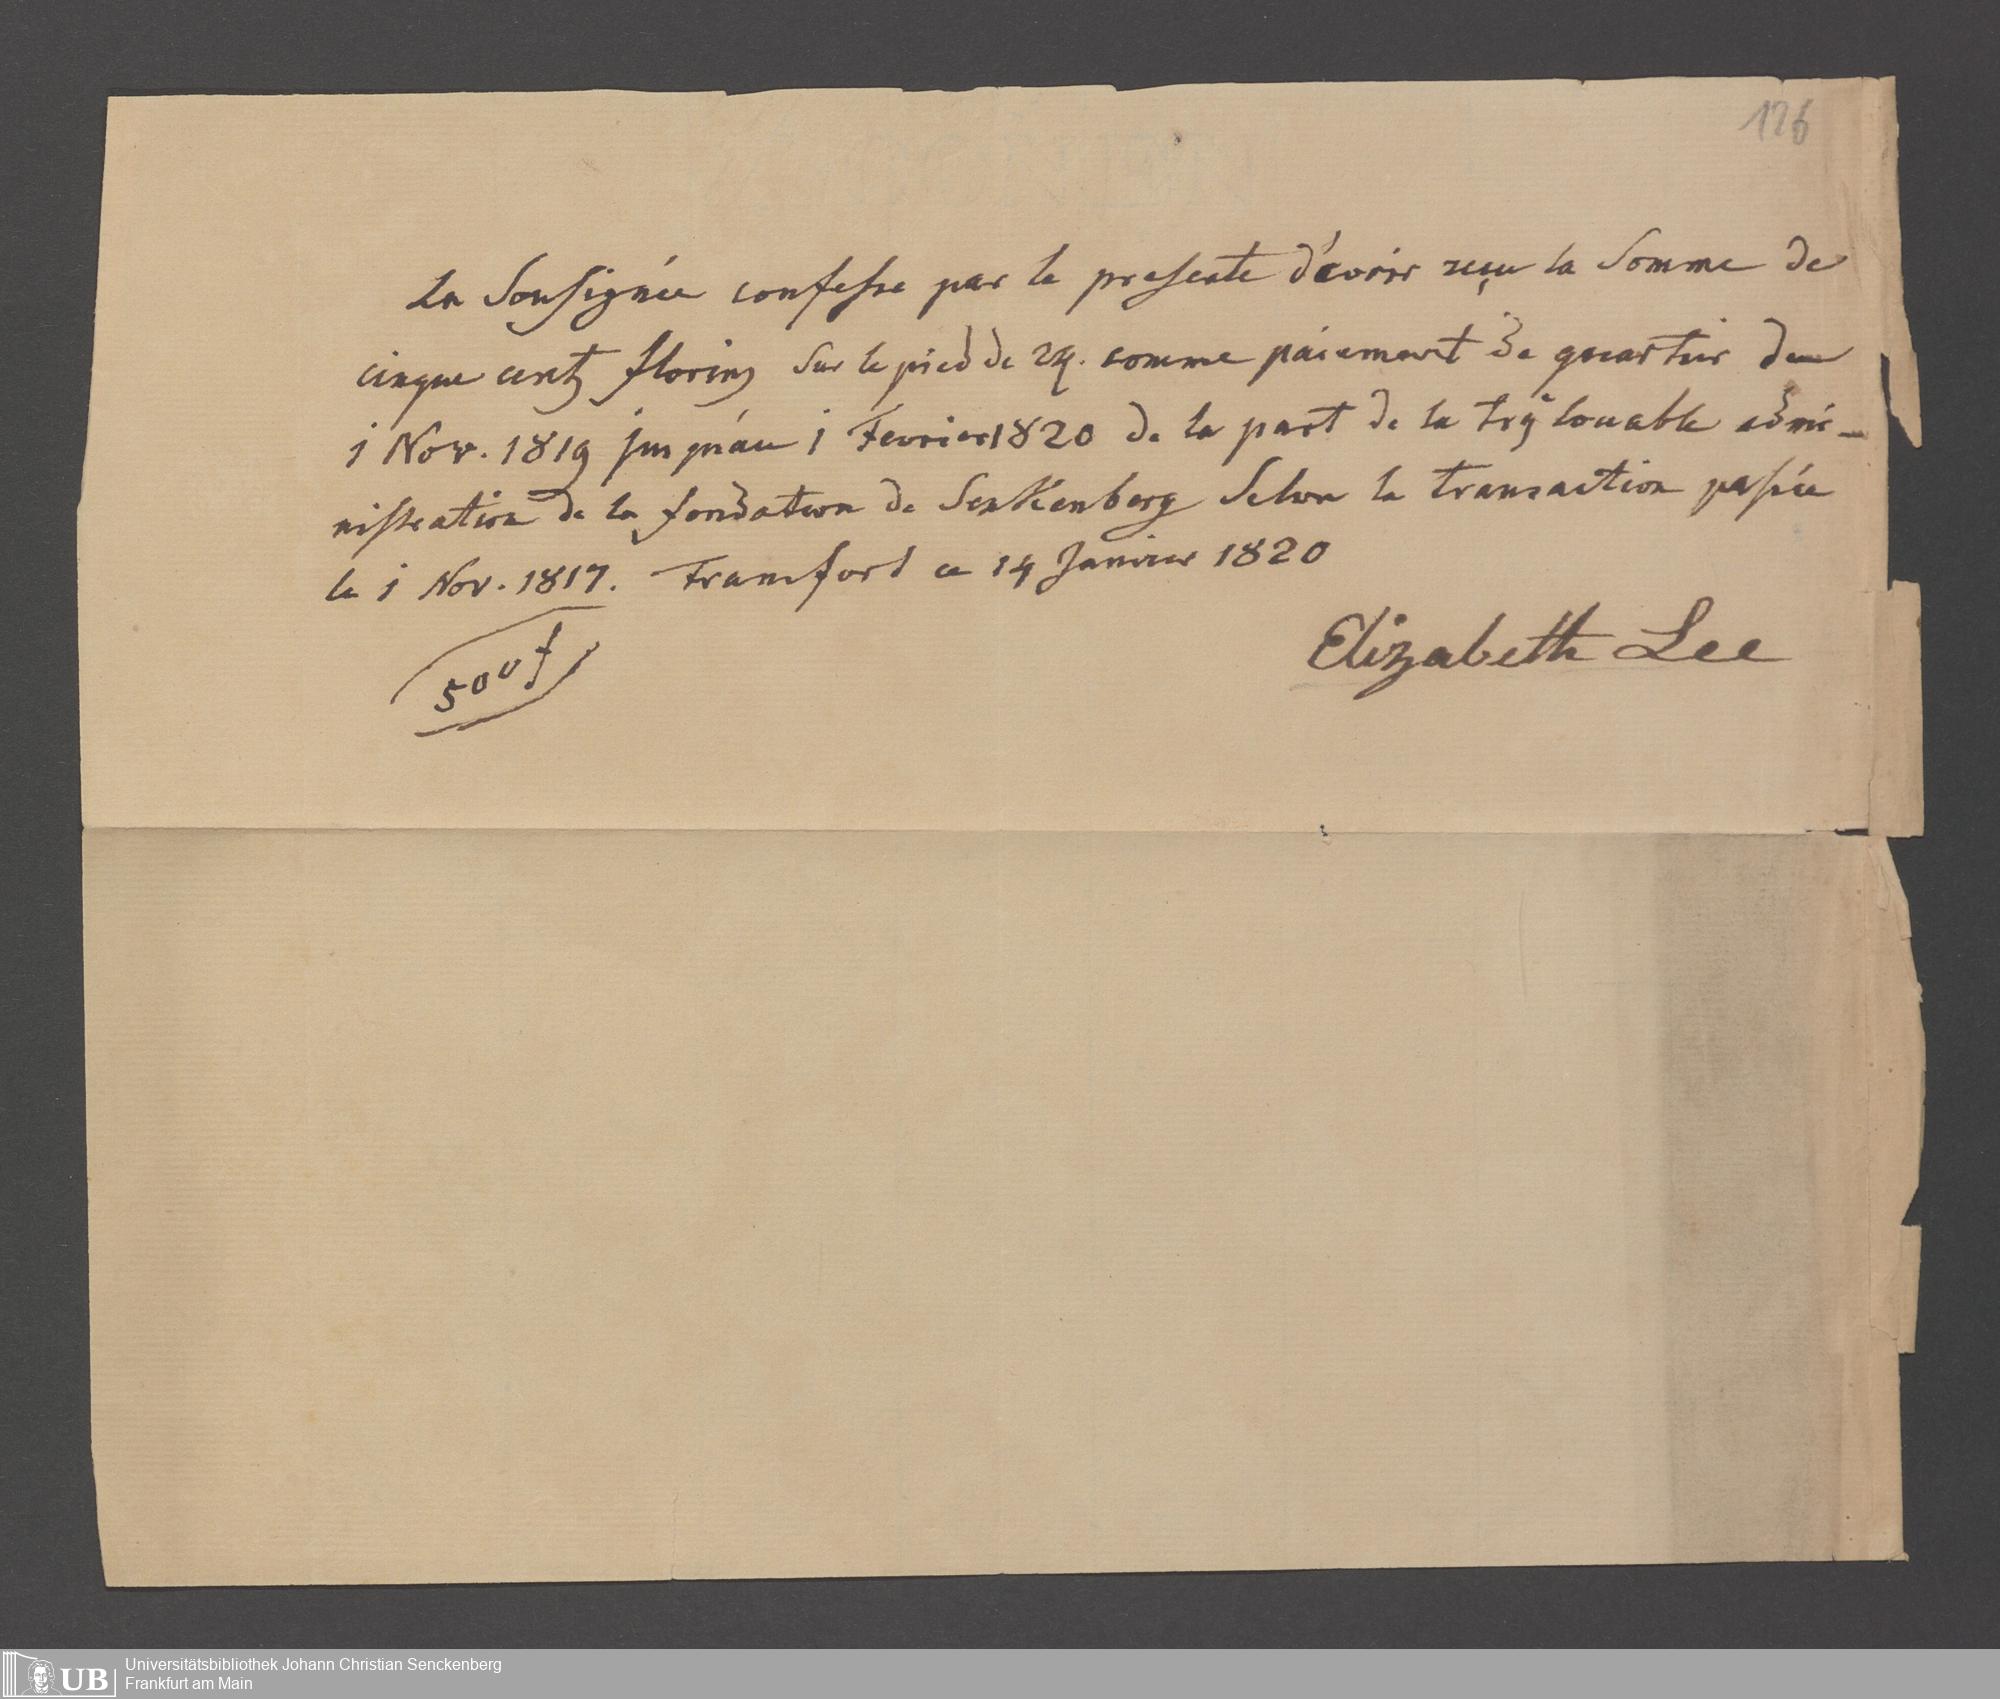 126
La Sousignée confesse par la presente d'avoir reçu la Somme de
cinque cents florins sur le pied de 24. comme paiement de quartier du
1 Nov. 1819 jusqu'au 1 Fevrier 1820 de la part de la très louable admi-
nistration de la fondation de Senkenberg Selon la transaction passée
le 1 Nov. 1817. Francfort ce 14 Janvier 1820
Elizabeth Lee
500 f
UB
Universitätsbibliothek Johann Christian Senckenberg
Frankfurt am Main